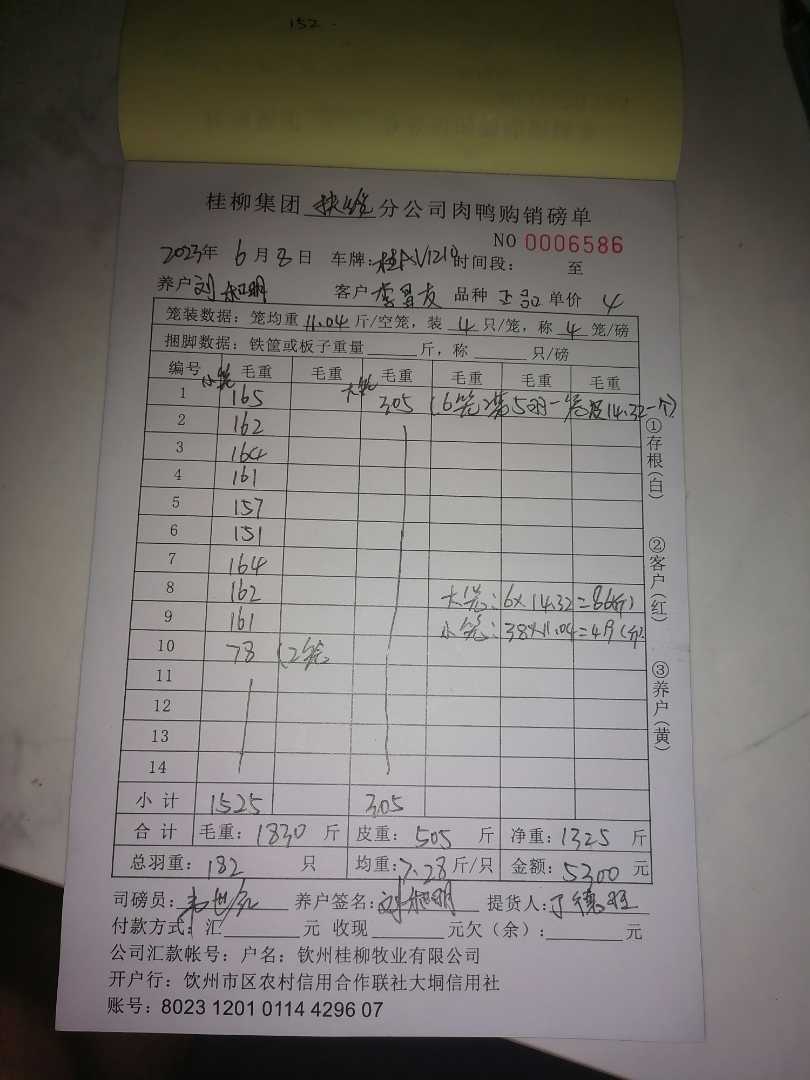 152
桂柳集团 扶绥 分公司肉鸭购销磅单
NO 0006586
2023年 6 月 8 日 车牌: 时间段: 至
养户 刘 明 客户 李 友 品种 正品 单价 4
笼装数据: 笼均重 11.04 斤/空笼, 装 4 只/笼, 称 4 笼/磅
捆脚数据: 铁筐或板子重量 斤, 称 只/磅
编号 小笼 毛重 毛重 大笼 毛重 毛重 毛重 毛重
1 165 305 (6笼) 5羽一笼 14.32一个)
2 162
3 164
4 161
5 157
6 151
7 164
8 162 大笼: 6×14.32=86(斤)
9 161 小笼: 38×11.04=419(斤)
10 78 (2笼)
11
12
13
14
小计 1525 305
合计 毛重: 1830 斤 皮重: 505 斤 净重: 1325 斤
总羽重: 182 只 均重: 7.28 斤/只 金额: 5300 元
司磅员: 养户签名: 刘 明 提货人: 丁德旺
付款方式: 汇 元 收现 元欠(余): 元
公司汇款帐号: 户名: 钦州桂柳牧业有限公司
开户行: 钦州市区农村信用合作联社大垌信用社
账号: 8023 1201 0114 4296 07
①存根(白)
②客户(红)
③养户(黄)